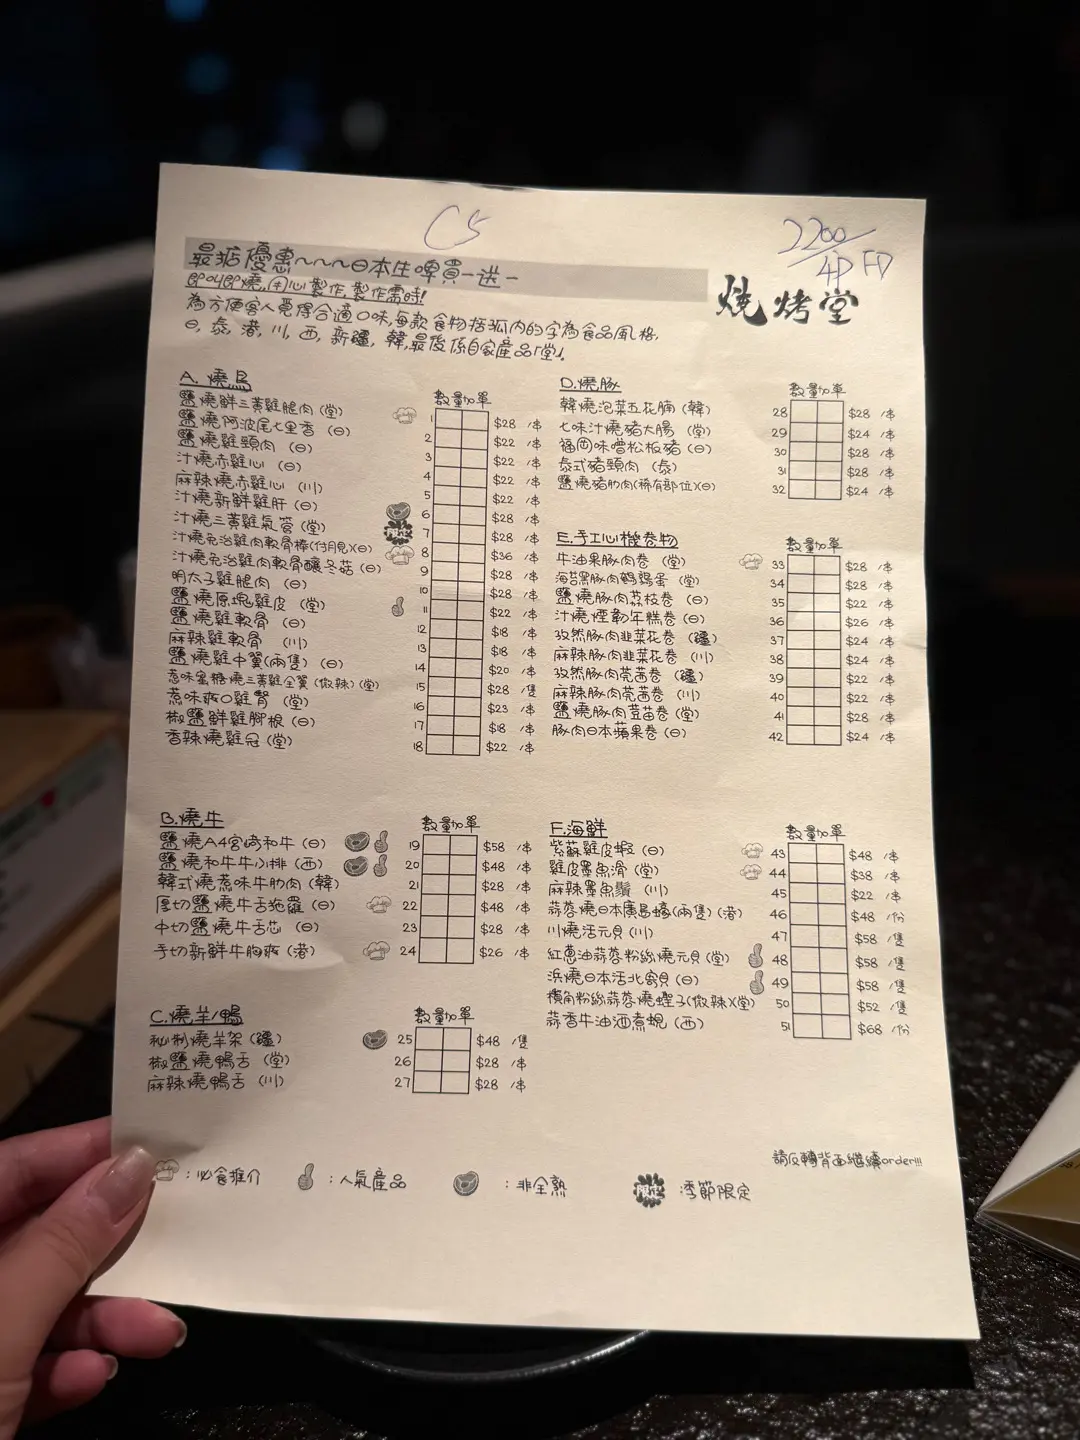 C5
2200/
4P FD
最狀優惠~~~日本生啤買一送一
即叫即燒,用心製作,製作需時!
為方便客人覓得合適口味,每款食物括弧內的字為食品風格,
日, 泰, 港, 川, 西, 新疆, 韓,最後係自家產品「堂」.
燒烤堂
A. 燒鳥
數量加單
鹽燒鮮三黃雞腿肉 (堂) 1 $28 /串
鹽燒阿波尾七里香 (日) 2 $22 /串
鹽燒雞頸肉 (日) 3 $22 /串
汁燒赤雞心 (日) 4 $22 /串
麻辣燒赤雞心 (川) 5 $22 /串
汁燒新鮮雞肝 (日) 6 $28 /串
汁燒三黃雞氣管 (堂) 限定 7 $28 /串
汁燒免治雞肉軟骨棒(付月見)(日) 8 $36 /串
汁燒免治雞肉軟骨釀冬菇 (日) 9 $28 /串
明太子雞腿肉 (日) 10 $28 /串
鹽燒原塊雞皮 (堂) 11 $22 /串
鹽燒雞軟骨 (日) 12 $18 /串
麻辣雞軟骨 (川) 13 $18 /串
鹽燒雞中翼(兩隻) (日) 14 $20 /串
惹味蜜糖燒三黃雞全翼 (微辣) (堂) 15 $28 /隻
惹味爽口雞腎 (堂) 16 $23 /串
椒鹽鮮雞腳根 (日) 17 $18 /串
香辣燒雞冠 (堂) 18 $22 /串
B.燒牛
數量加單
鹽燒A4宮崎和牛 (日) 19 $58 /串
鹽燒和牛牛小排 (西) 20 $48 /串
韓式燒惹味牛肋肉 (韓) 21 $28 /串
厚切鹽燒牛舌拖羅 (日) 22 $48 /串
中切鹽燒牛舌芯 (日) 23 $28 /串
手切新鮮牛胸爽 (港) 24 $26 /串
C.燒羊/鴨
數量加單
秘制燒羊架 (疆) 25 $48 /隻
椒鹽燒鴨舌 (堂) 26 $28 /串
麻辣燒鴨舌 (川) 27 $28 /串
D.燒豚
數量加單
韓燒泡菜五花腩 (韓) 28 $28 /串
七味汁燒豬大腸 (堂) 29 $24 /串
福岡味噌松板豬 (日) 30 $28 /串
泰式豬頸肉 (泰) 31 $28 /串
鹽燒豬肋肉(稀有部位)(日) 32 $24 /串
E.手工心機卷物
數量加單
牛油果豚肉卷 (堂) 33 $28 /串
海苔黑豚肉鵪鶉蛋 (堂) 34 $28 /串
鹽燒豚肉荔枝卷 (日) 35 $22 /串
汁燒煙韌年糕卷 (日) 36 $26 /串
孜然豚肉韭菜花卷 (疆) 37 $24 /串
麻辣豚肉韭菜花卷 (川) 38 $24 /串
孜然豚肉芫茜卷 (疆) 39 $22 /串
麻辣豚肉芫茜卷 (川) 40 $22 /串
鹽燒豚肉荳苗卷 (堂) 41 $28 /串
豚肉日本蘋果卷 (日) 42 $24 /串
F.海鮮
數量加單
紫蘇雞皮蝦 (日) 43 $48 /串
雞皮墨魚滑 (堂) 44 $38 /串
麻辣墨魚鬚 (川) 45 $22 /串
蒜蓉燒日本廣島蠔(兩隻) (港) 46 $48 /份
川燒活元貝 (川) 47 $58 /隻
紅蔥油蒜蓉粉絲燒元貝 (堂) 48 $58 /隻
浜燒日本活北寄貝 (日) 49 $58 /隻
欖角粉絲蒜蓉燒蟶子(微辣)(堂) 50 $52 /隻
蒜香牛油酒煮蜆 (西) 51 $68 /份
請反轉背面繼續order!!!
:必食推介
:人氣產品
:非全熟
限定 :季節限定